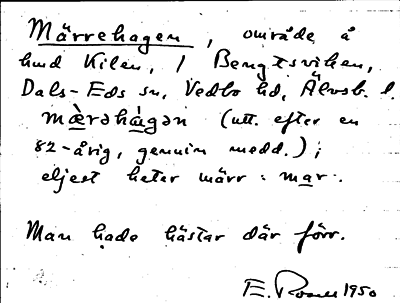 Märrehagen, område å
hmd Kilen, / Bengtsviken,
Dals-Eds sn, Vedbo hd, Älvsb. l.
mæ̀rəhàgən (utt. efter en
82-årig, genuin medd.);
eljest heter märr : mar.
Man hade hästar där förr.
E. 1950